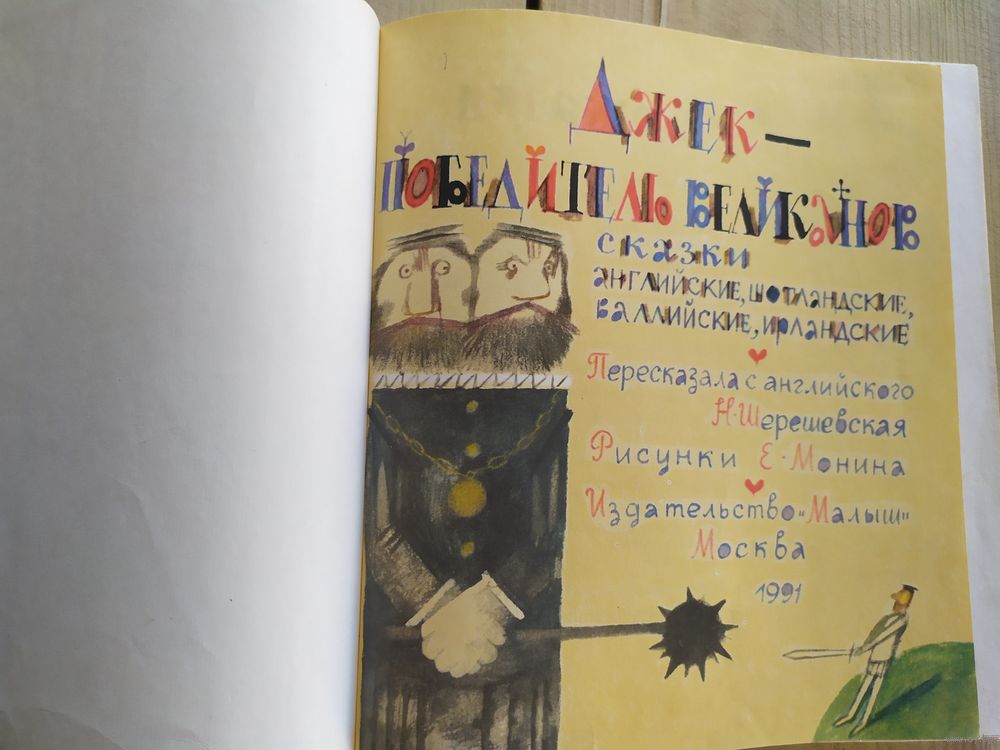 Джек —
победитель великанов
сказки
английские, шотландские,
валлийские, ирландские
Пересказала с английского
Н. Шерешевская
Рисунки Е. Монина
Издательство „Малыш"
Москва
1991